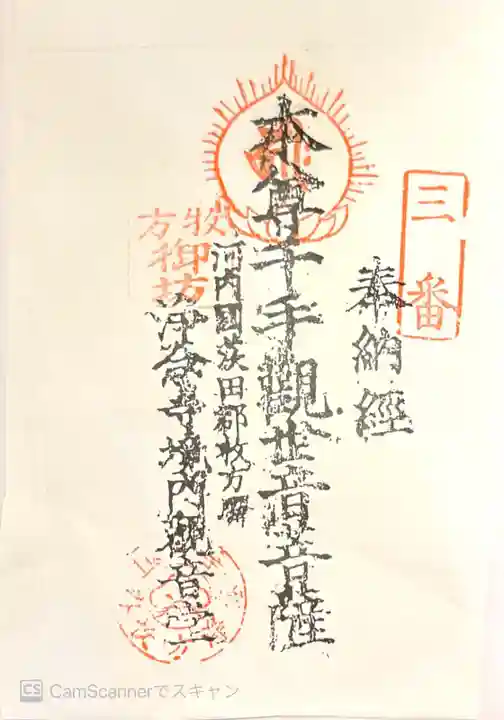 三番
奉納經
本尊千手觀世音菩薩
河内國茨田郡枚方驛
淨念寺境内觀音堂
枚方
御坊
CS CamScannerでスキャン